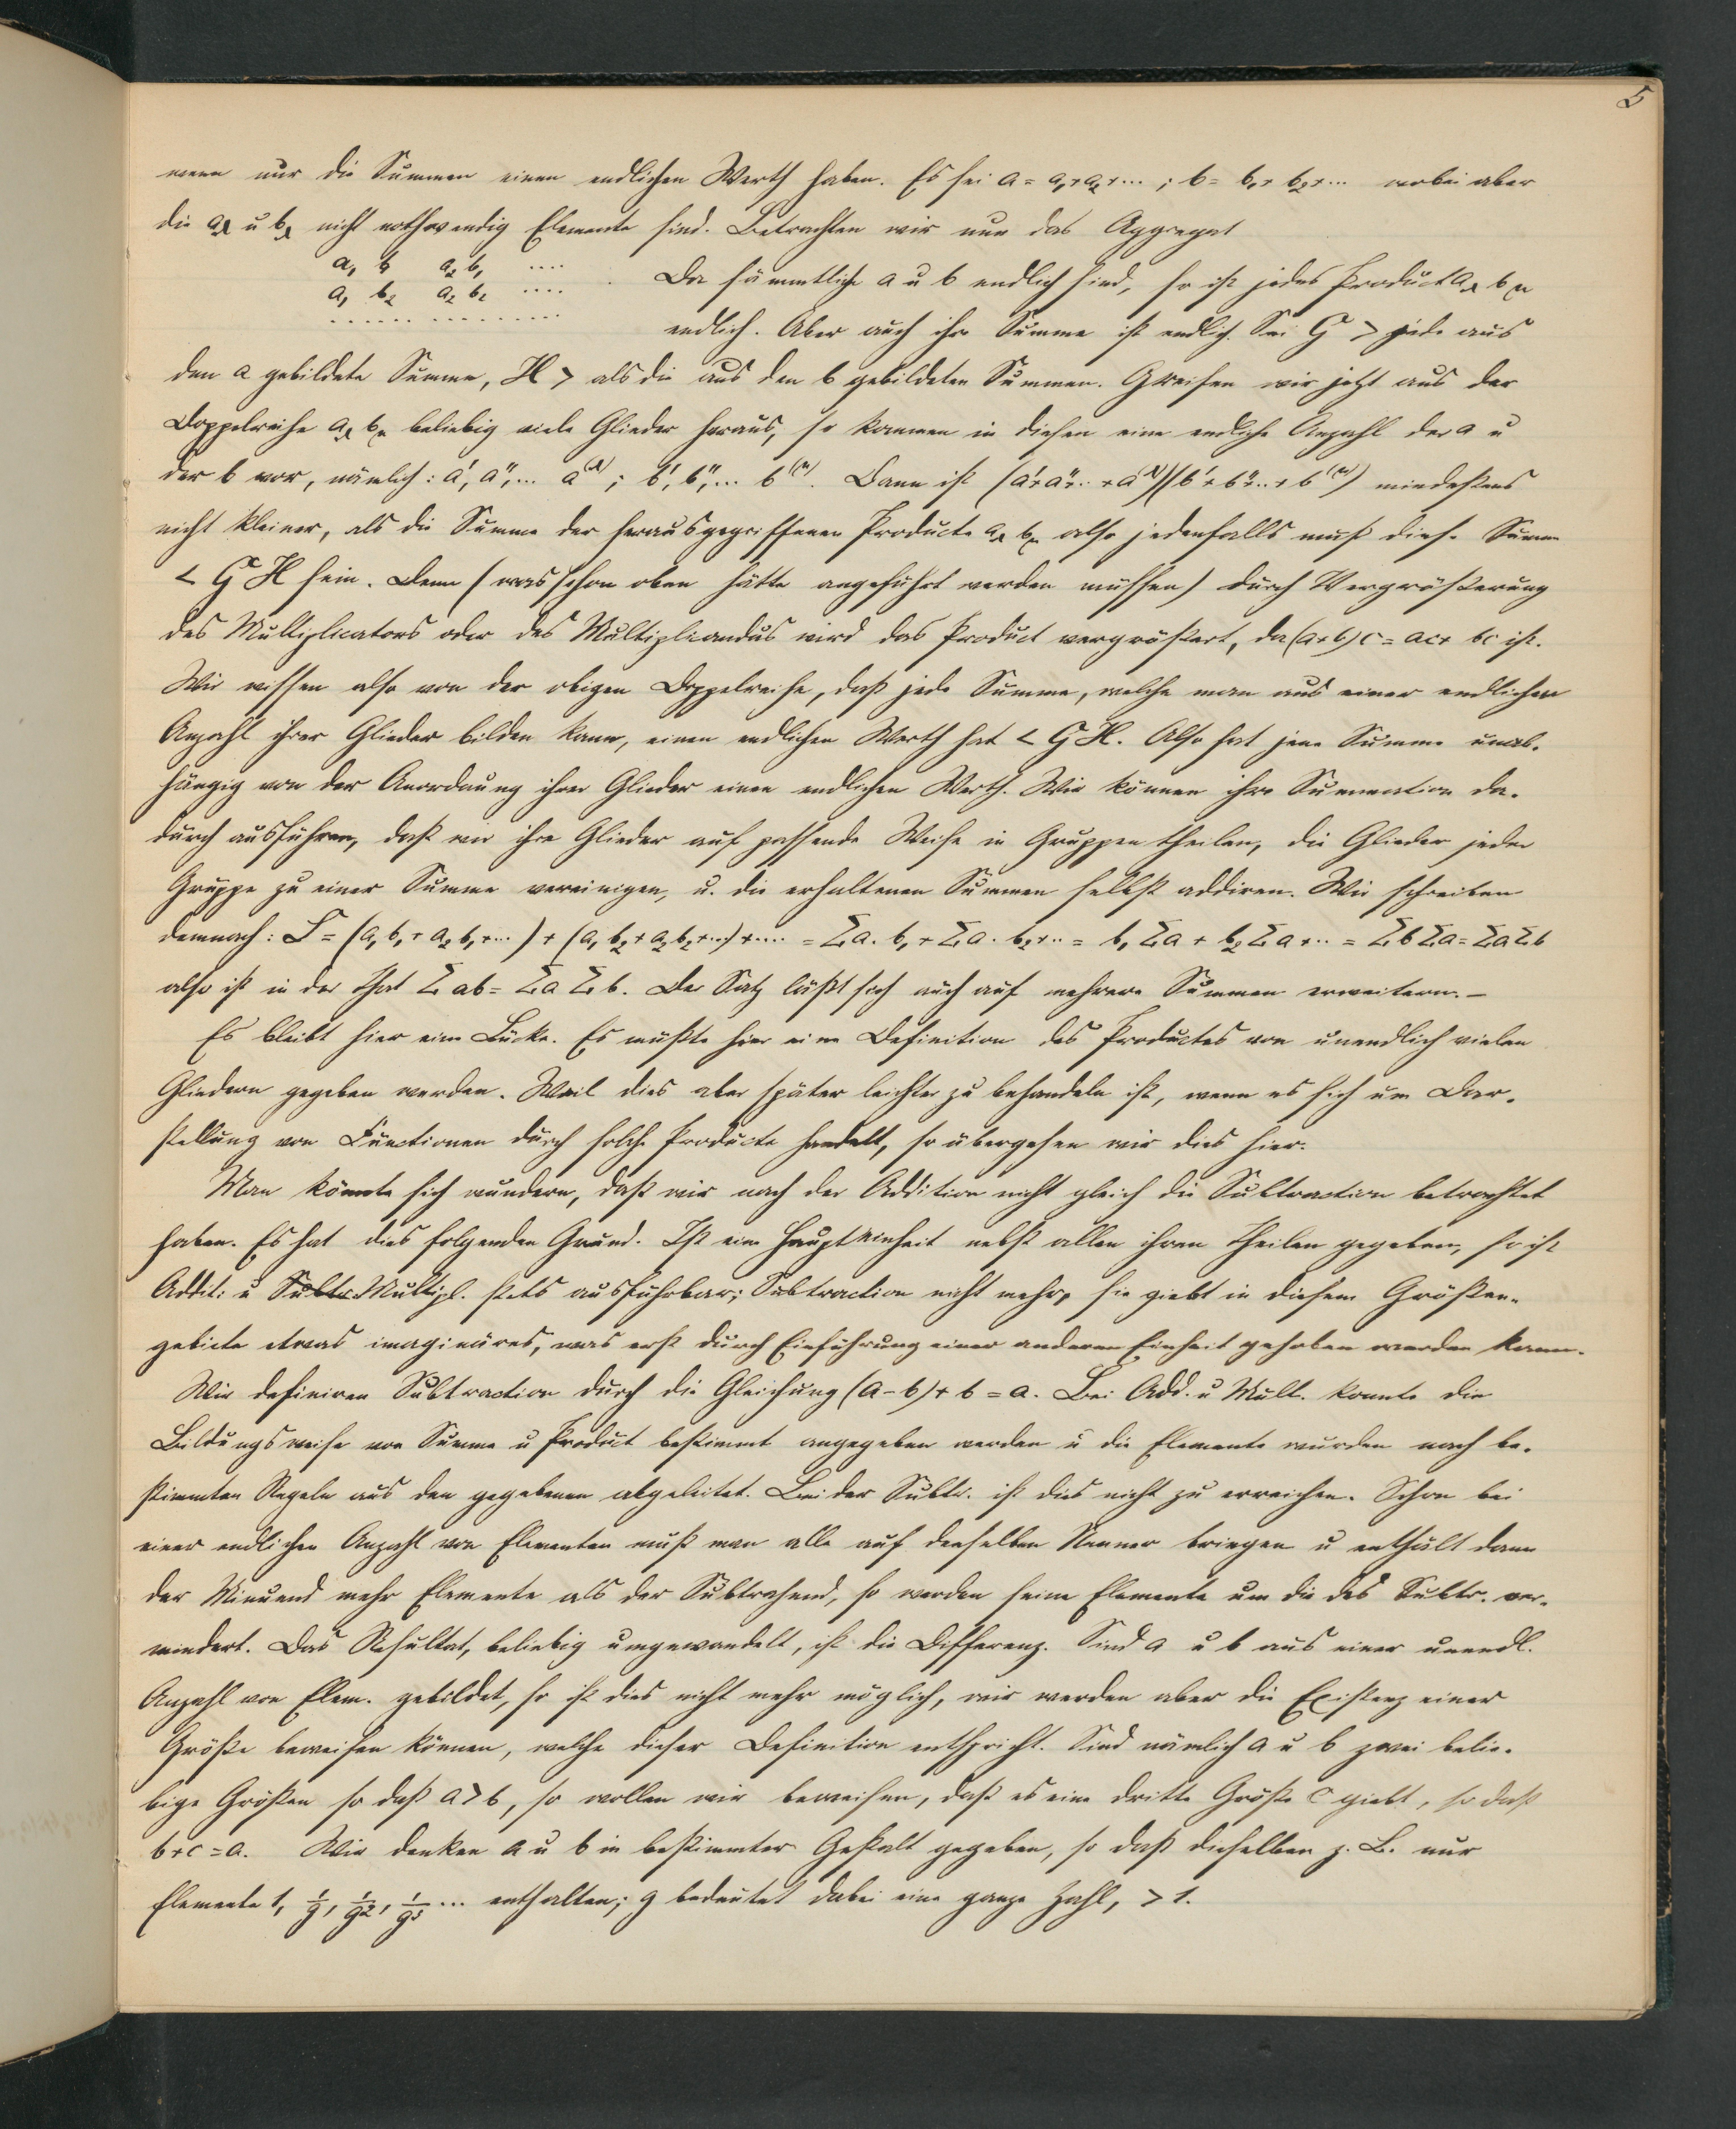 5
wenn nur die Summen einen endlichen Werth haben. Es sei a = a₁+a₂+··· ; b = b₁+ b₂+··· wobei aber
die a_λ u b_λ nicht nothwendig Elemente sind. Betrachten wir nun das Aggregat
a₁ b₁ a₂ b₁ ····
a₁ b₂ a₂ b₂ ····
Da sämmtliche a u b endlich sind, so ist jedes Product a_λ b_μ
endlich. Aber auch ihre Summe ist endlich. Sei G > jede aus
den a gebildete Summe, H > als die aus den b gebildeten Summen. Greifen wir jetzt aus der
Doppelreihe a_λ b_μ beliebig viele Glieder heraus, so kommen in diesen eine endliche Anzahl der a u
der b vor, nämlich: a', a'',... a^(λ) ; b', b'',... b^(μ). Dann ist (a'+a''+..+a^(λ))(b'+b''+..+b^(μ)) mindestens
nicht kleiner, als die Summe der herausgegriffenen Producte a_λ b_μ also jedenfalls muß diese Summe
< G H sein. Denn (was schon oben hätte angeführt werden müssen) durch Vergrößerung
des Multiplicators oder des Multipliandus wird das Product vergrößert, da (a+b)c = ac+ bc ist.
Wir wissen also von der obigen Doppelreihe, daß jede Summe, welche man aus einer endlichen
Anzahl ihrer Glieder bilden kann, einen endlichen Werth hat < G H. Also hat jene Summe unab-
hängig von der Anordnung ihrer Glieder einen endlichen Werth. Wir können ihre Summation da-
durch ausführen, daß wir ihre Glieder auf passende Weise in Gruppen theilen, die Glieder jeder
Gruppe zu einer Summe vereinigen, u. die erhaltenen Summen selbst addiren. Wir schreiben
demnach: S = (a₁ b₁+ a₂ b₁+···) + (a₁ b₂+a₂ b₂+···)+···· = Σa. b₁+Σa. b₂+·· = b₁ Σa + b₂ Σa+·· = ΣbΣa=ΣaΣb
also ist in der That Σ ab = Σa Σb. Der Satz läßt sich auch auf mehrere Summen erweitern. –
Es bleibt hier eine Lücke. Es müßte hier eine Definition des Productes von unendlich vielen
Gliedern gegeben werden. Weil dies aber später leichter zu behandeln ist, wenn es sich um Dar-
stellung von Functionen durch solche Producte handelt, so übergehen wir dies hier.
Man könnte sich wundern, daß wir nach der Addition nicht gleich die Subtraction betrachtet
haben. Es hat dies folgenden Grund. Ist eine Haupteinheit nebst allen ihren Theilen gegeben, so ist
Addit: u Subtr. Multipl. stets ausführbar; Subtraction nicht mehr, sie giebt in diesem Größen-
gebiete etwas imaginäres, was erst durch Einführung einer anderen Einheit gehoben werden kann.
Wir definiren Subtraction durch die Gleichung (a-b)+ b = a. Bei Add. u Mult. konnte die
Bildungsweise von Summe u Product bestimmt angegeben werden u die Elemente wurden nach be-
stimmten Regeln aus den gegebenen abgeleitet. Bei der Subtr. ist dies nicht zu erreichen. Schon bei
einer endlichen Anzahl von Elementen muß man alle auf denselben Nenner bringen u enthält dann
der Minuend mehr Elemente als der Subtrahend, so werden seine Elemente um die des Subtr. ver-
mindert. Das Resultat, beliebig umgewandelt, ist die Differenz. Sind a u b aus einer unendl.
Anzahl von Elem. gebildet, so ist dies nicht mehr möglich, wir werden aber die Existenz einer
Größe beweisen können, welche dieser Definition entspricht. Sind nämlich a u b zwei belie-
bige Größen so daß a > b, so wollen wir beweisen, daß es eine dritte Größe c giebt, so daß
b+c = a. Wir denken a u b in bestimmter Gestalt gegeben, so daß dieselben z. B. nur
Elemente 1, 1/g, 1/g², 1/g³ ... enthalten; g bedeutet dabei eine ganze Zahl, > 1.